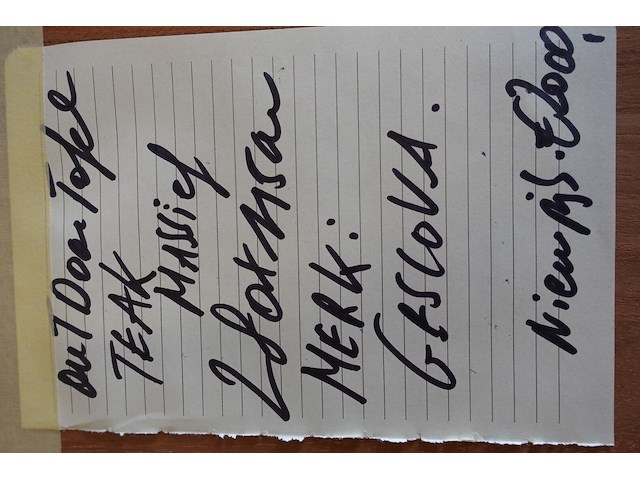 OUTDoor Tafel
TEAK
MASSIEF
MERK:
GESCOVA.
Nieuw prijs. €2000,